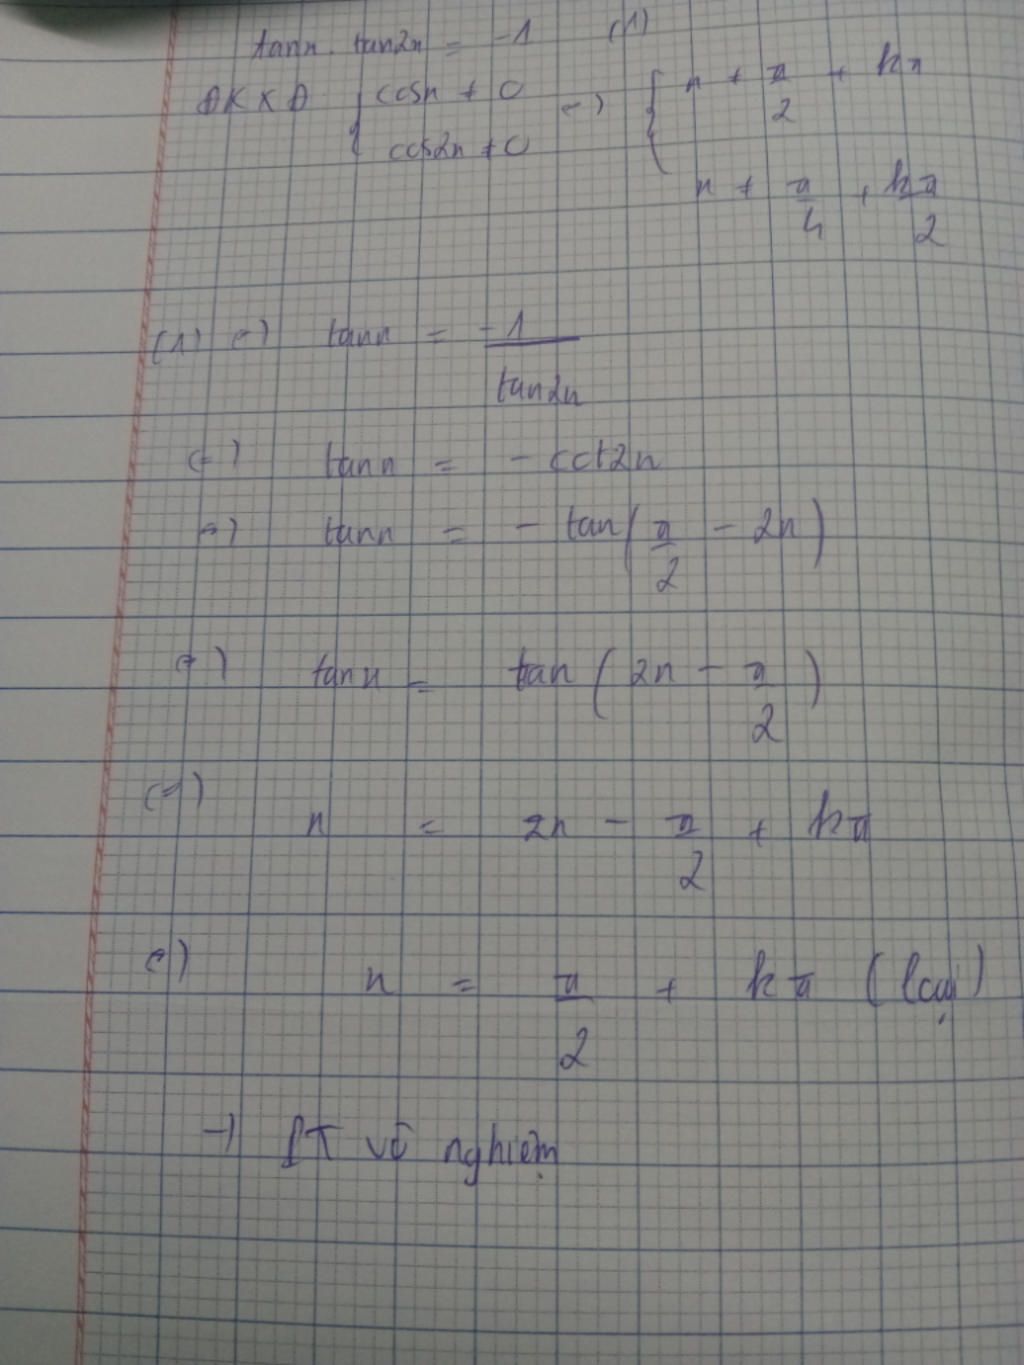 tanx . tan2x = -1 (1)
ĐKXĐ { cosx ≠ 0 (=) { x ≠ π/2 + kπ
cos2x ≠ 0 x ≠ π/4 + kπ/2
(1) (=) tanx = -1/tan2x
(=) tanx = - cot2x
(=) tanx = - tan(π/2 - 2x)
(=) tanx = tan(2x - π/2)
(=) x = 2x - π/2 + kπ
(=) x = π/2 + kπ (loại)
=) PT vô nghiệm